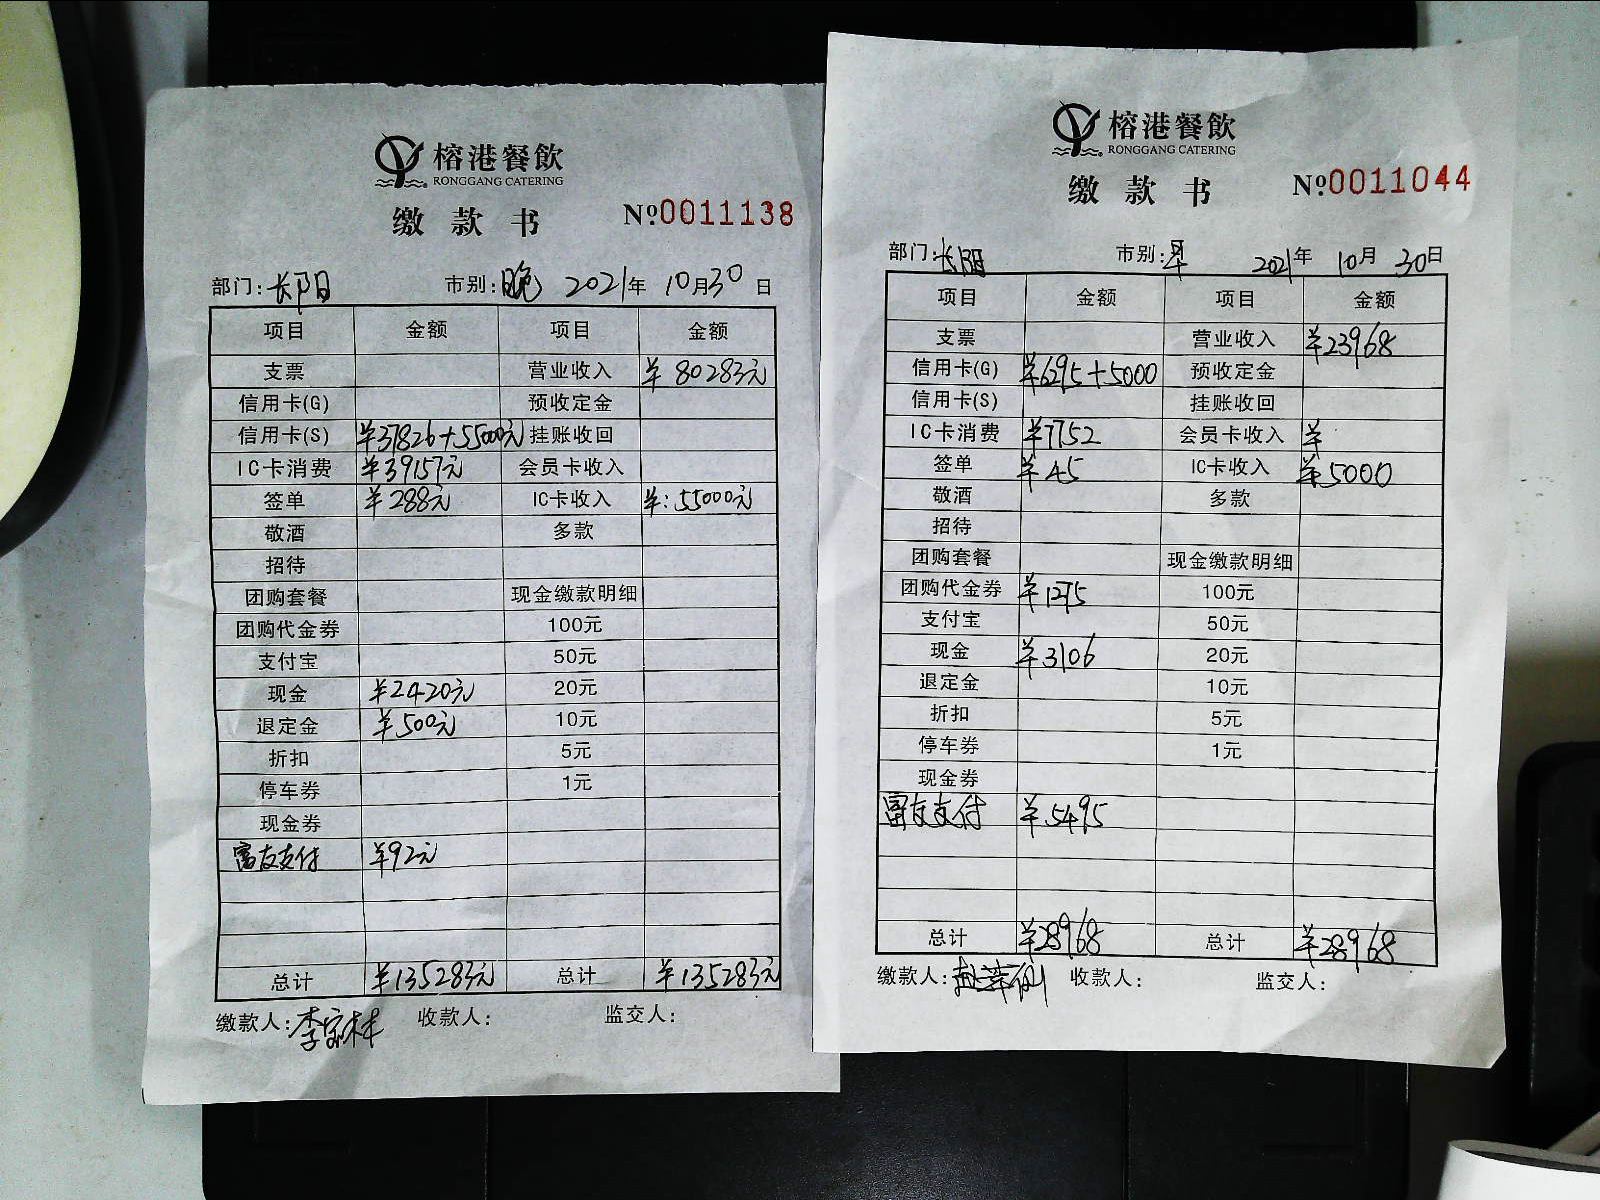 榕港餐飲
RONGGANG CATERING
缴款书 №0011138
部门:长阳 市别:晚 2021年10月30日
项目 金额 项目 金额
支票 营业收入 ¥80283元
信用卡(G) 预收定金
信用卡(S) ¥37826+55000元 挂账收回
IC卡消费 ¥39157元 会员卡收入
签单 ¥288元 IC卡收入 ¥:55000元
敬酒 多款
招待
团购套餐 现金缴款明细
团购代金券 100元
支付宝 50元
现金 ¥2420元 20元
退定金 ¥500元 10元
折扣 5元
停车券 1元
现金券
富友支付 ¥92元
总计 ¥135283元 总计 ¥135283元
缴款人:李宝林 收款人: 监交人:
榕港餐飲
RONGGANG CATERING
缴款书 №0011044
部门:长阳 市别:早 2021年10月30日
项目 金额 项目 金额
支票 营业收入 ¥23968
信用卡(G) ¥6295+5000 预收定金
信用卡(S) 挂账收回
IC卡消费 ¥7752 会员卡收入 ¥
签单 ¥45 IC卡收入 ¥5000
敬酒 多款
招待
团购套餐 现金缴款明细
团购代金券 ¥1275 100元
支付宝 50元
现金 ¥3106 20元
退定金 10元
折扣 5元
停车券 1元
现金券
富友支付 ¥5495
总计 ¥28968 总计 ¥28968
缴款人: 收款人: 监交人: